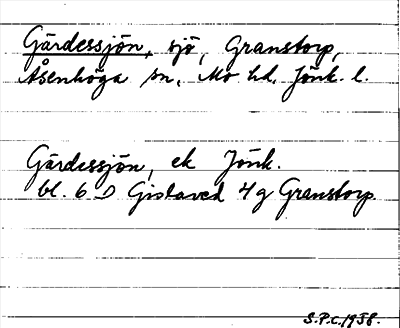 Gärdessjön, sjö, Granstorp,
Åsenhöga sn, Mo hd. Jönk. l.
Gärdessjön, ek Jönk.
bl. 6 D Gislaved 4 g Granstorp.
S.P.C. 1958.